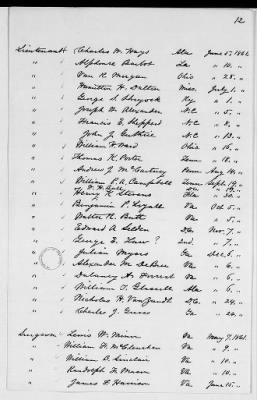 12
Lieutenant Charles W. Hays Ala June 5, 1861
" Alphonse Barbot La " 10, "
" Van R. Morgan Ohio " 28, "
" Hamilton H. Dalton Miss. July 1, "
" George S. Shryock Ky " 1, "
" Joseph W. Alexander N.C " 5, "
" Francis E. Shepperd N.C "
" John J. Guthrie N.C " 13, "
" William H Ward Ohio " 15, "
" Thomas K. Porter Tenn " 18, "
" Andrew J. McCartney Penn Aug 14, "
" William P. A. Campbell Tenn Sept 19, "
" Henry K. Stevens Fla " 30, "
" Benjamin P. Loyall Va Oct 5, "
" Walter R. Butt Va " 5, "
" Edward A. Selden D.C. Nov. 7, "
" George E. Law ? Ind. " 7, "
" Julian Myers Ga Dec 6, "
" Alexander M. DeBree Va " 6, "
" Dulaney A. Forrest Va " 6, "
" William T. Glassell Ala " 6, "
" Nicholas H. VanZandt D.C. " 24, "
" Charles J. Graves Ga " 24, "
Surgeon Lewis W. Minor Va May 7, 1861.
" William F. McClenahan Va " 9, "
" William D. Sinclair Va " 10, "
" Randolph F. Mason Va " 10, "
" James F. Harrison Va June 15, "